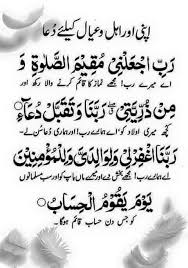 اپنی اور اہل و عیال کیلئے دُعا
رَبِّ اجْعَلْنِي مُقِيمَ الصَّلَاةِ وَ
اے میرے رب! مجھے نماز کا قائم کرنے والا رکھ اور
مِنْ ذُرِّيَّتِي ۖ رَبَّنَا وَتَقَبَّلْ دُعَاءِ ○
میری اولاد کو اے ہمارے رب! اور ہماری دعا سن لے۔
رَبَّنَا اغْفِرْ لِي وَلِوَالِدَيَّ وَلِلْمُؤْمِنِينَ
اے ہمارے رب! مجھے بخش دے اور میرے ماں باپ کو اور سب مسلمانوں
يَوْمَ يَقُومُ الْحِسَابُ ○
کو جس دن حساب قائم ہوگا۔